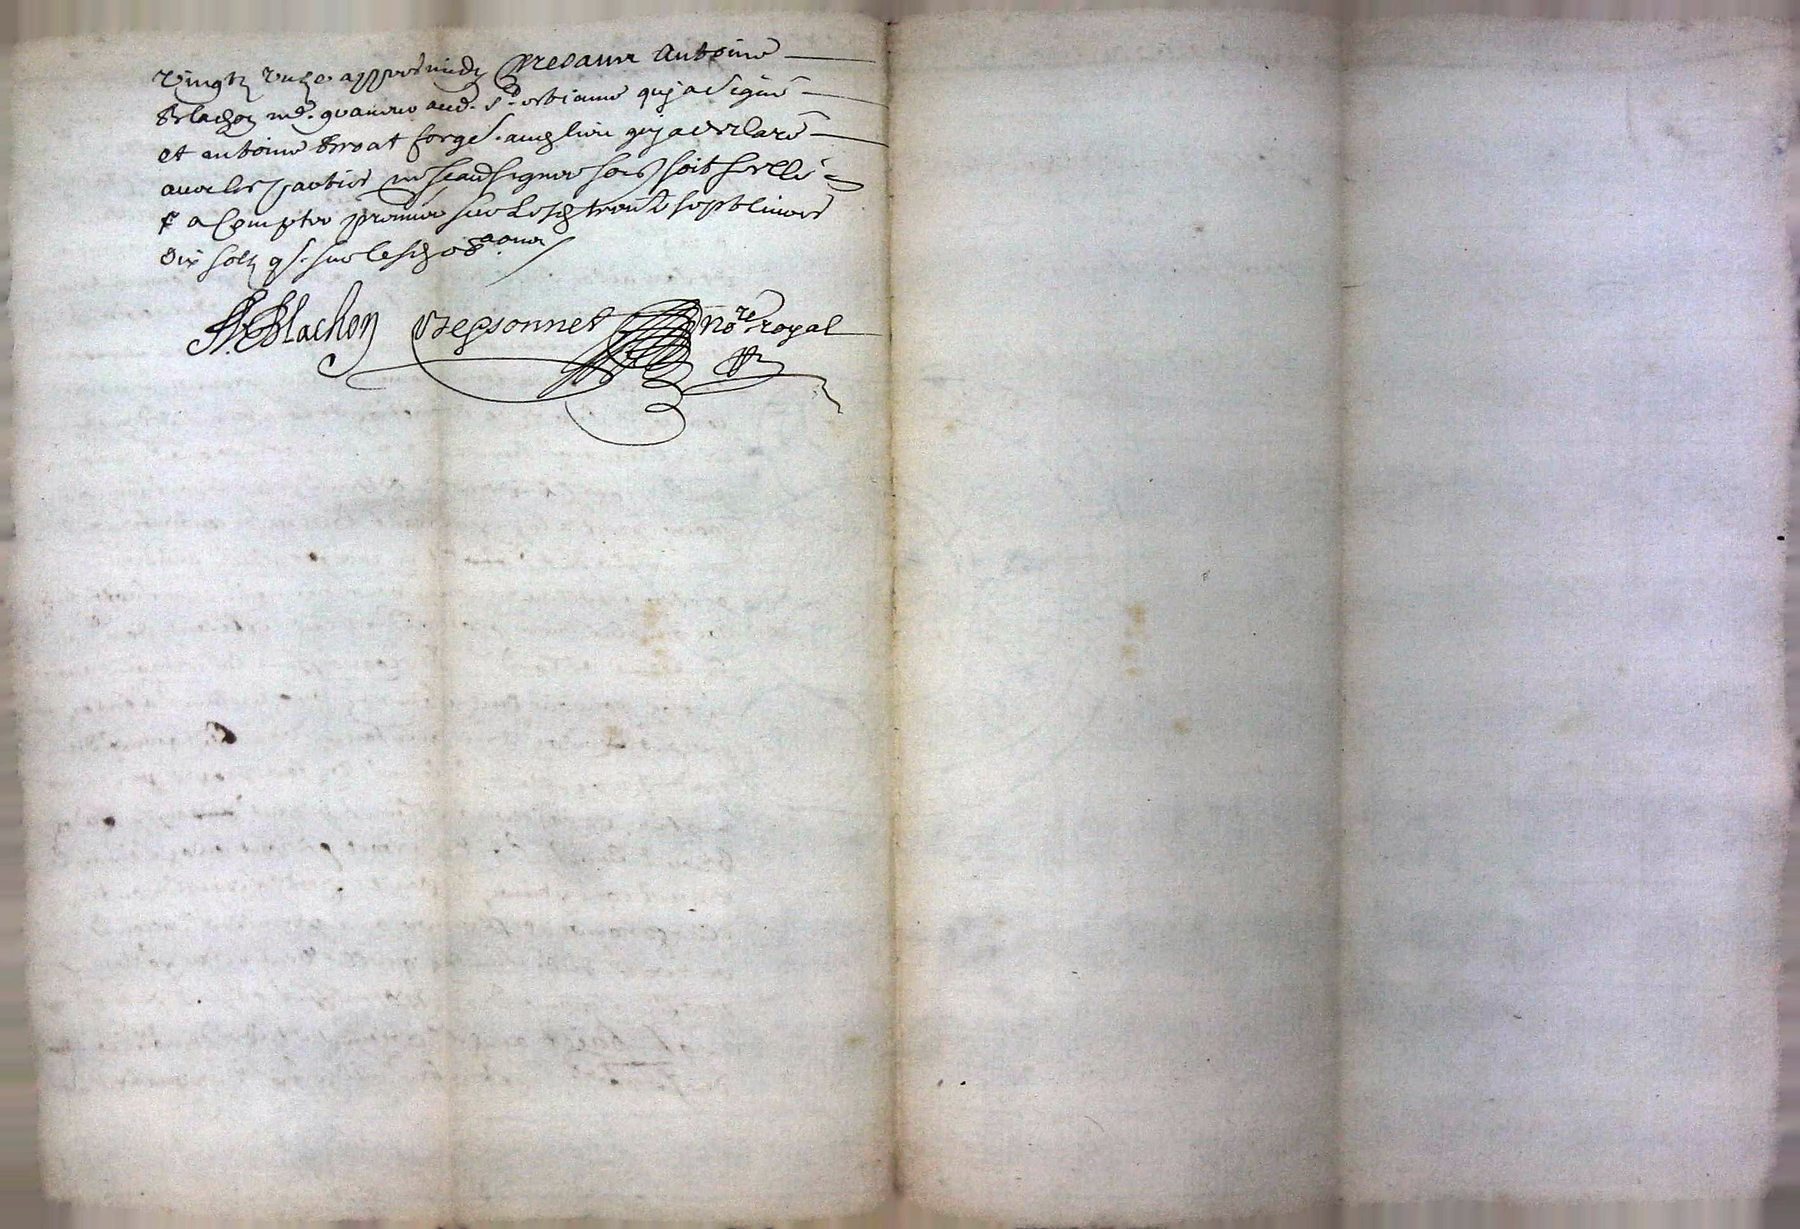 Vingtz unze appres midy Presans Antoine
Blachon md. gvanuro aud. St. estienne quy a signé
et antoine broat forge. aud lieu quy a declaré
avec les parties ne scavoir signer soict soit scellé
& a Compter premier sur Lesd trente sept livres
dix solz gs. sur lesd oban.
A. Blachon Teyssonnet nore royal